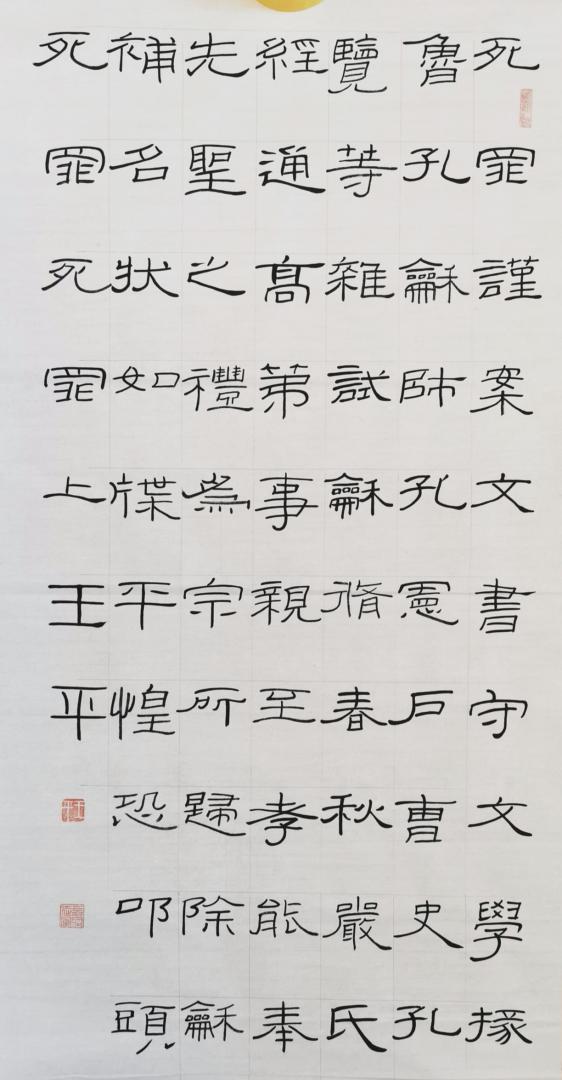 死罪謹案文書守文學掾
魯孔龢師孔憲戶曹史孔
覽等雜試龢脩春秋嚴氏
經通髙第事親至孝能奉
先聖之禮為宗所歸除龢
補名狀如牒平惶恐叩頭
死罪死罪上王平